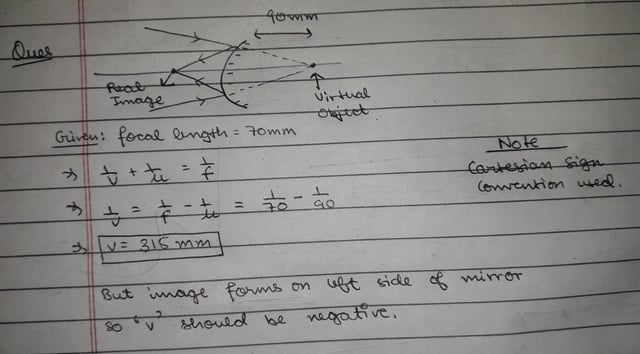 Ques
90mm
Real
Image
Virtual
Object
Given: focal length = 70mm
Note
Cartesian Sign
Convention used.
⇒ 1/v + 1/u = 1/f
⇒ 1/v = 1/f - 1/u = 1/70 - 1/90
⇒ v = 315 mm
But image forms on left side of mirror
so 'v' should be negative.